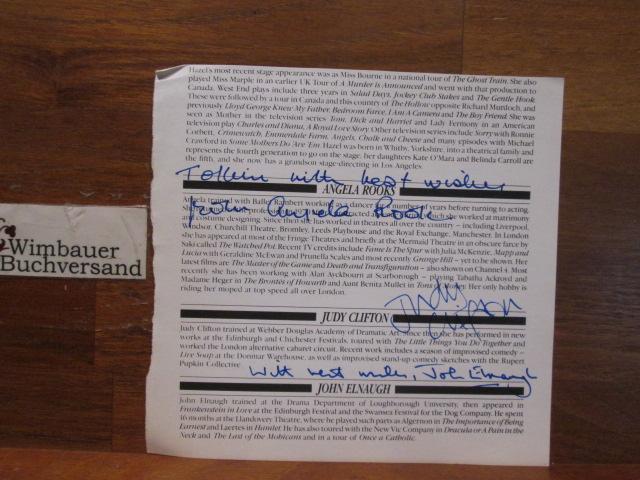 Hazel's most recent stage appearance was as Miss Bourne in a national tour of The Ghost Train. She also
played Miss Marple in an earlier UK Tour of A Murder is Announced and went with that production to
Canada. West End plays include three years in Salad Days, Jockey Club Stakes and The Gentle Hook
These were followed by a tour in Canada and this country of The Hollow opposite Richard Murdoch, and
previously Lloyd George Knew My Father, Bedroom Farce, I Am A Camera and The Boy Friend. She was
seen as Mother in the television series Tom, Dick and Harriet and Lady Fermony in an American
television play Charles and Diana, A Royal Love Story. Other television series include Sorry with Ronnie
Corbett, Crimewatch, Emmerdale Farm, Angels, Chalk and Cheese and many episodes with Michael
Crawford in Some Mothers Do Are Em Hazel was born in Whitby, Yorkshire, into a theatrical family and
represents the fourth generation to go on the stage; her daughters Kate O'Mara and Belinda Carroll are
the fifth, and she now has a grandson stage-directing in Los Angeles.
To with best wishes
ANGELA ROOKS
from Angela Rooks
Angela trained with Ballet Rambert working as a dancer for a number of years before turning to acting.
She has worked in theatres all over the country – including Liverpool,
Windsor, Churchill Theatre, Bromley, Leeds Playhouse and the Royal Exchange, Manchester. In London
she has appeared at most of the Fringe Theatres and briefly at the Mermaid Theatre in an obscure farce by
Saki called The Watched Pot. Recent TV credits include Fame Is The Spur with Julia McKenzie, Mapp and
Lucia with Geraldine McEwan and Prunella Scales and most recently Grange Hill – yet to be shown. Her
latest films are The Master of the Game and Death and Transfiguration – also shown on Channel 4. Most
recently she has been working with Alan Ayckbourn at Scarborough – playing Tabatha Ackroyd and
Madame Heger in The Brontës of Howarth and Aunt Benita Mullet in Tons of Money. Her only hobby is
riding her moped at top speed all over London.
Judy Clifton
JUDY CLIFTON
Judy Clifton trained at Webber Douglas Academy of Dramatic Art. Since then she has performed in new
works at the Edinburgh and Chichester Festivals, toured with The Little Things You Do Together and
worked the London alternative cabaret circuit. Recent work includes a season of improvised comedy –
Live Soup at the Donmar Warehouse, as well as improvised stand-up comedy sketches with the Rupert
Pupkin Collective.
With best wishes, John Elnaugh
JOHN ELNAUGH
John Elnaugh trained at the Drama Department of Loughborough University, then appeared in
Frankenstein in Love at the Edinburgh Festival and the Swansea Festival for the Dog Company. He spent
16 months at the Llandovery Theatre, where he played such parts as Algernon in The Importance of Being
Earnest and Laertes in Hamlet. He has also toured with the New Vic Company in Dracula or A Pain in the
Neck and The Last of the Mohicans and in a tour of Once a Catholic.
Wimbauer
Buchversand